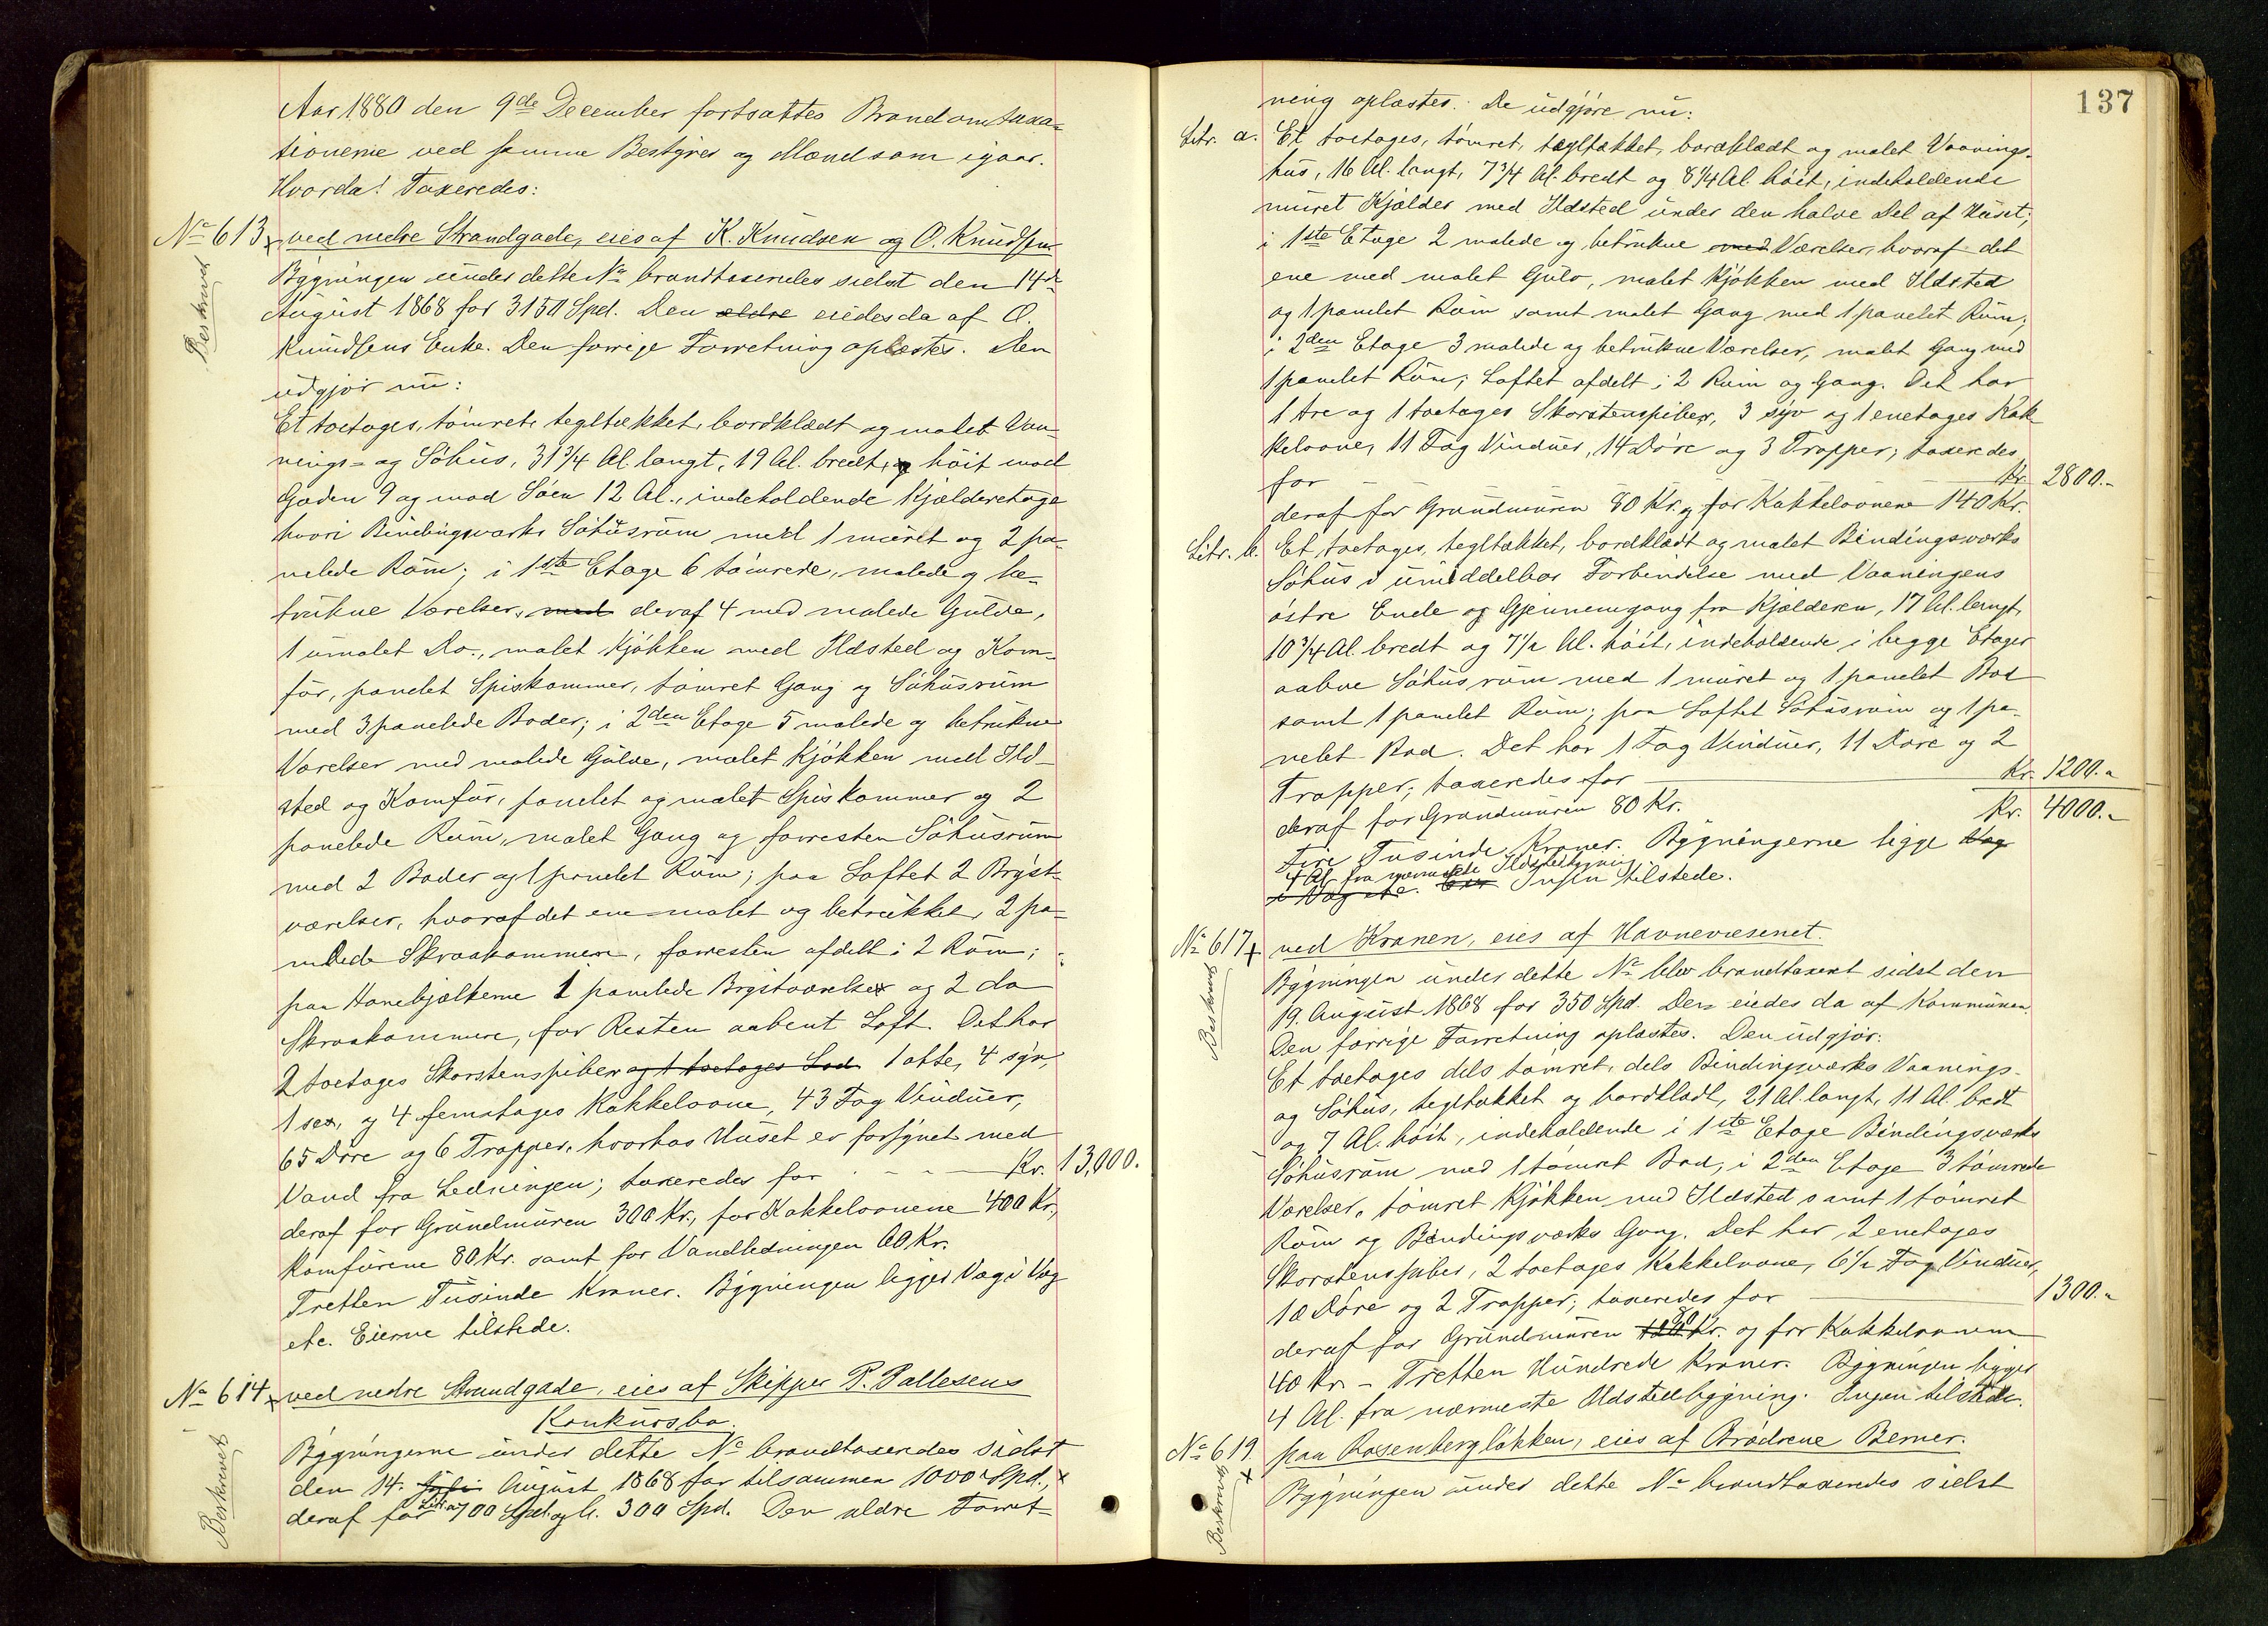 Aar 1880 den 9de December fortsattes Brandomtaxa-
tionerne ved samme Bestyrer og Mænd som igaar.
Hvorda! Taxeredes:
No 613 x ved nedre Strandgade, eies af K. Knudsen og O. Knudsen
Beskrevet
Bygningen under dette No brandtaxeredes sidst den 14de
August 1868 for 3150 Spd. Den ældre eiedes da af O.
Knudsens Enke. Den forrige Forretning oplæstes. Den
udgjør nu:
Et toetages, tømret, tegltækket, bordklædt og malet Vaa-
nings- og Søhus, 31 3/4 Al. langt, 19 Al. bredt, og høit mod
Gaden 9 og mod Søen 12 Al., indeholdende Kjælderetage
hvori Bindingsværks Søhusrum med 1 muret og 2 pa-
nelede Rum; i 1ste Etage 6 tømrede, malede og be-
trukne Værelser, med deraf 4 med malede Gulve,
1 umalet Do., malet Kjøkken med Ildsted og Kom-
fur, panelet Spiskammer, tømret Gang og Søhusrum
med 3 panelede Boder; i 2den Etage 5 malede og betrukne
Værelser med malede Gulve, malet Kjøkken med Ild-
sted og Komfur, panelet og malet Spiskammer og 2
panelede Rum, malet Gang og forresten Søhusrum
med 2 Boder og 1 panelet Rum; paa Loftet 2 Bryst-
værelser, hvoraf det ene malet og betrukket, 2 pa-
nelede Skraakammere, forresten afdelt i 2 Rum;
paa Hanebjælkerne 1 panelede Brystværelser og 2 do
Skraakammere, for Resten aabent Loft. Det har
2 toetages Skorstenspiber og 1 toetages Lod. 1 otte, 4 syv,
1 sex, og 4 femetages Kakkelovne, 43 Fag Vinduer,
65 Døre og 6 Trapper, hvorhos Huset er forsynet med
Vand fra Ledningen; taxeredes for Kr. 13,000.
deraf for Grundmuren 300 Kr., for Kakkelovnene 400 Kr.,
Komfurene 80 Kr. samt for Vandledningen 60 Kr.
Tretten Tusinde Kroner. Bygningen ligger Væg i Væg
etc. Eierne tilstede.
No 614 x ved nedre Strandgade, eies af Skipper P. Pallesens
Konkursbo.
Beskrevet
Bygningerne under dette No brandtaxeredes sidst
den 14. Juli August 1868 for tilsammen 1000 Spd.,
deraf for Litr. a 700 Spd. og b. 300 Spd. Den ældre Forret-
137
ning oplæstes. De udgjøre nu:
Litr. a. Et toetages, tømret, tegltækket, bordklædt og malet Vaanings-
hus, 16 Al. langt, 7 3/4 Al. bredt og 8 1/4 Al. høit, indeholdende
muret Kjælder med Ildsted under den halve Del af Huset;
i 1ste Etage 2 malede og betrukne med Værelser, hvoraf det
ene med malet Gulv, malet Kjøkken med Ildsted
og 1 panelet Rum samt malet Gang med 1 panelet Rum;
i 2den Etage 3 malede og betrukne Værelser, malet Gang med
1 panelet Rum; Loftet afdelt i 2 Rum og Gang. Det har
1 tre og 1 toetages Skorstenspiber, 3 syv og 1 enetages Kak-
kelovne, 11 Fag Vinduer, 14 Døre og 3 Trapper; taxeredes
for Kr. 2800.-
deraf for Grundmuren 80 Kr. og for Kakkelovnene 140 Kr.
Litr. b. Et toetages, tegltækket, bordklædt og malet Bindingsværks
Søhus i umiddelbar Forbindelse med Vaaningens
østre Ende og Gjennemgang fra Kjælderen, 17 Al. langt,
10 3/4 Al. bredt og 7 1/2 Al. høit, indeholdende i begge Etager
aabne Søhusrum med 1 muret og 1 panelet Bod
samt 1 panelet Rum; paa Loftet Søhusrum og 1 pa-
nelet Bod. Det har 1 Fag Vinduer, 11 Døre og 2
Trapper; taxeredes for Kr. 1200.-
deraf for Grundmuren 80 Kr. Kr. 4000.-
Fire Tusinde Kroner. Bygningerne ligge Væg
4 Al. fra nærmeste Ildstedbygning
i Væg etc. Eier Ingen tilstede.
No 617 x ved Kranen, eies af Havnevæsenet.
Beskrevet
Bygningen under dette No blev brandtaxeret sidst den
19. August 1868 for 350 Spd. Den eiedes da af Kommunen.
Den forrige Forretning oplæstes. Den udgjør:
Et toetages dels tømret, dels Bindingsværks Vaanings-
og Søhus, tegltækket og bordklædt, 21 Al. langt, 11 Al. bredt
og 7 Al. høit, indeholdende i 1ste Etage Bindingsværks
Søhusrum med 1 tømret Bod, i 2den Etage 3 tømrede
Værelser, tømret Kjøkken med Ildsted samt 1 tømret
Rum og Bindingsværks Gang. Det har 2 enetages
Skorstenspiber, 2 toetages Kakkelovne, 6 1/2 Fag Vinduer,
10 Døre og 2 Trapper; taxeredes for 1300.-
deraf for Grundmuren 80 Kr. og for Kakkelovnene
40 Kr. - Tretten Hundrede Kroner. Bygningen ligger
4 Al. fra nærmeste Ildstedbygning. Ingen tilstede.
No 619. x paa Rosenbergløkken, eies af Brødrene Berner.
Beskrevet
Bygningen under dette No brandtaxeredes sidst